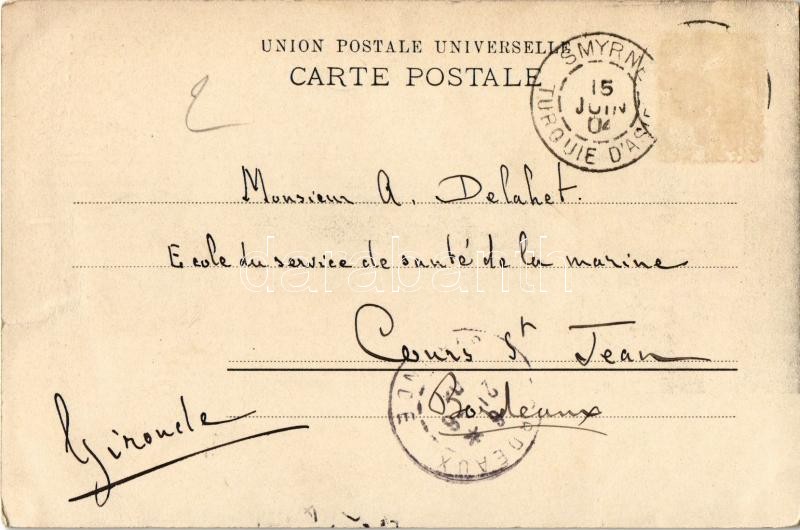 UNION POSTALE UNIVERSELLE
CARTE POSTALE
SMYRNE
15
JUIN
04
TURQUIE D'ASIE
Monsieur A. Delahet.
Ecole du service de santé de la marine
darabanth
Cours St Jean
Bordeaux
Gironde
BORDEAUX